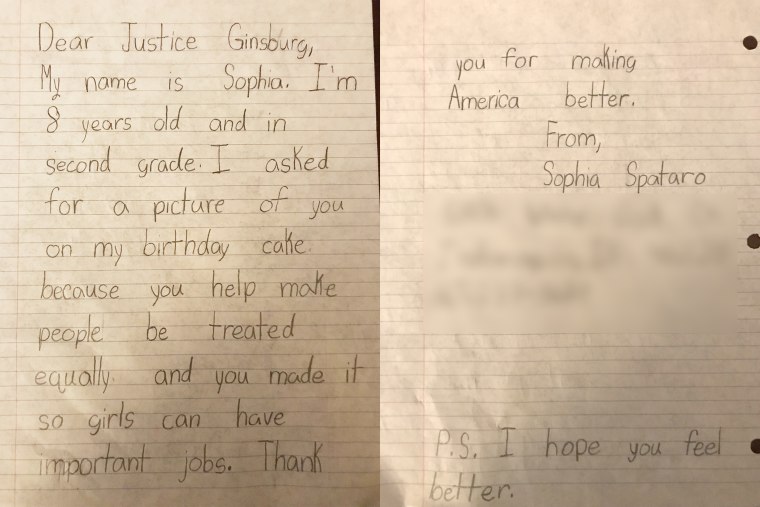 Dear Justice Ginsburg,
My name is Sophia. I'm
8 years old and in
second grade. I asked
for a picture of you
on my birthday cake
because you help make
people be treated
equally. and you made it
so girls can have
important jobs. Thank
you for making
America better.
From,
Sophia Spataro
P.S. I hope you feel
better.